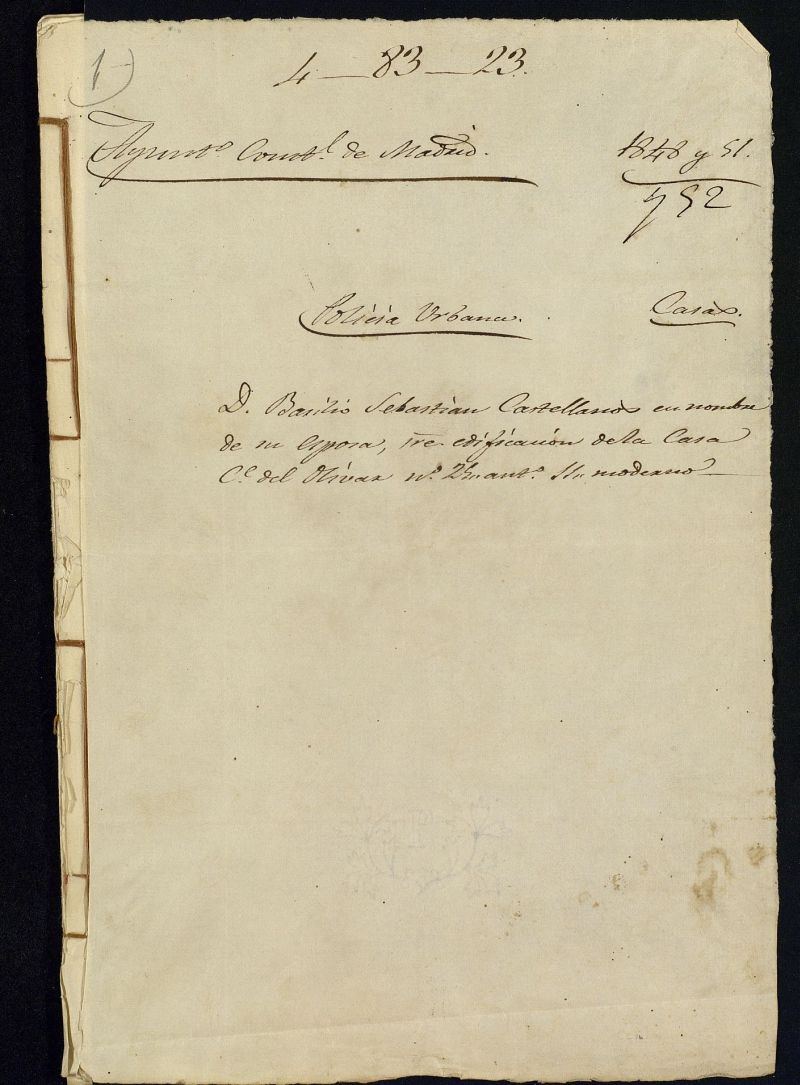 1
4 — 83 — 23.
Ayunt.º Const.l de Madrid. 1848 y 51.
y 52
Policia Urbana. Casas.
D. Basilio Sebastian Castellanos en nombre
de su esposa, re edificacion de la Casa
C.e del Olivar n.º ant.º 11 moderno —